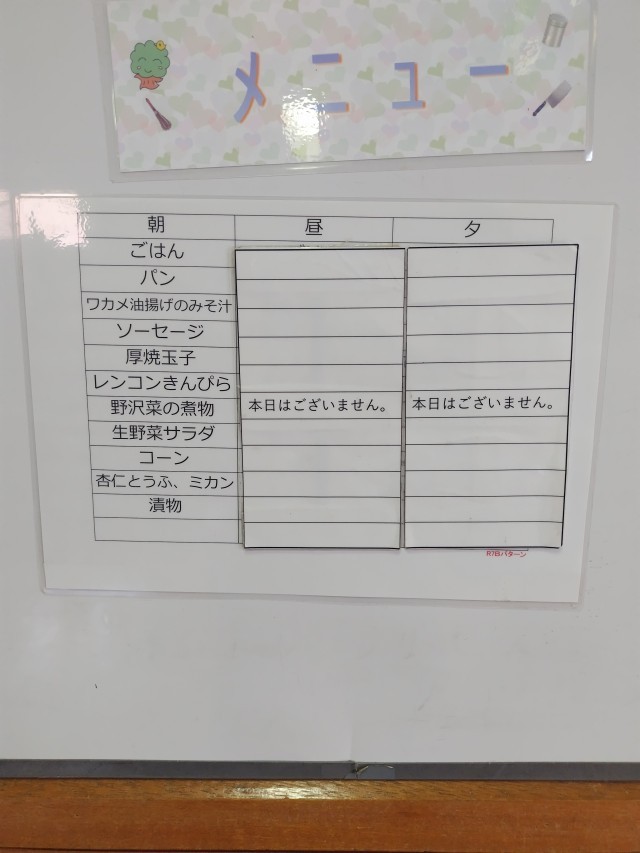 メニュー
朝 昼 夕
ごはん
パン
ワカメ油揚げのみそ汁
ソーセージ
厚焼玉子
レンコンきんぴら
野沢菜の煮物 本日はございません。 本日はございません。
生野菜サラダ
コーン
杏仁とうふ、ミカン
漬物
R7Bパターン